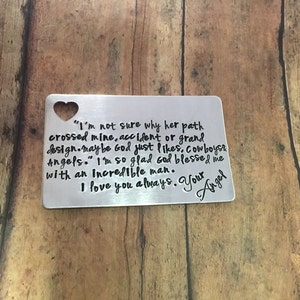 "I'm not sure why her path
crossed mine, accident or grand
design. maybe God just likes, cowboys&
Angels." I'm so glad God blessed me
with an incredible man.
I love you always. Your
Angel